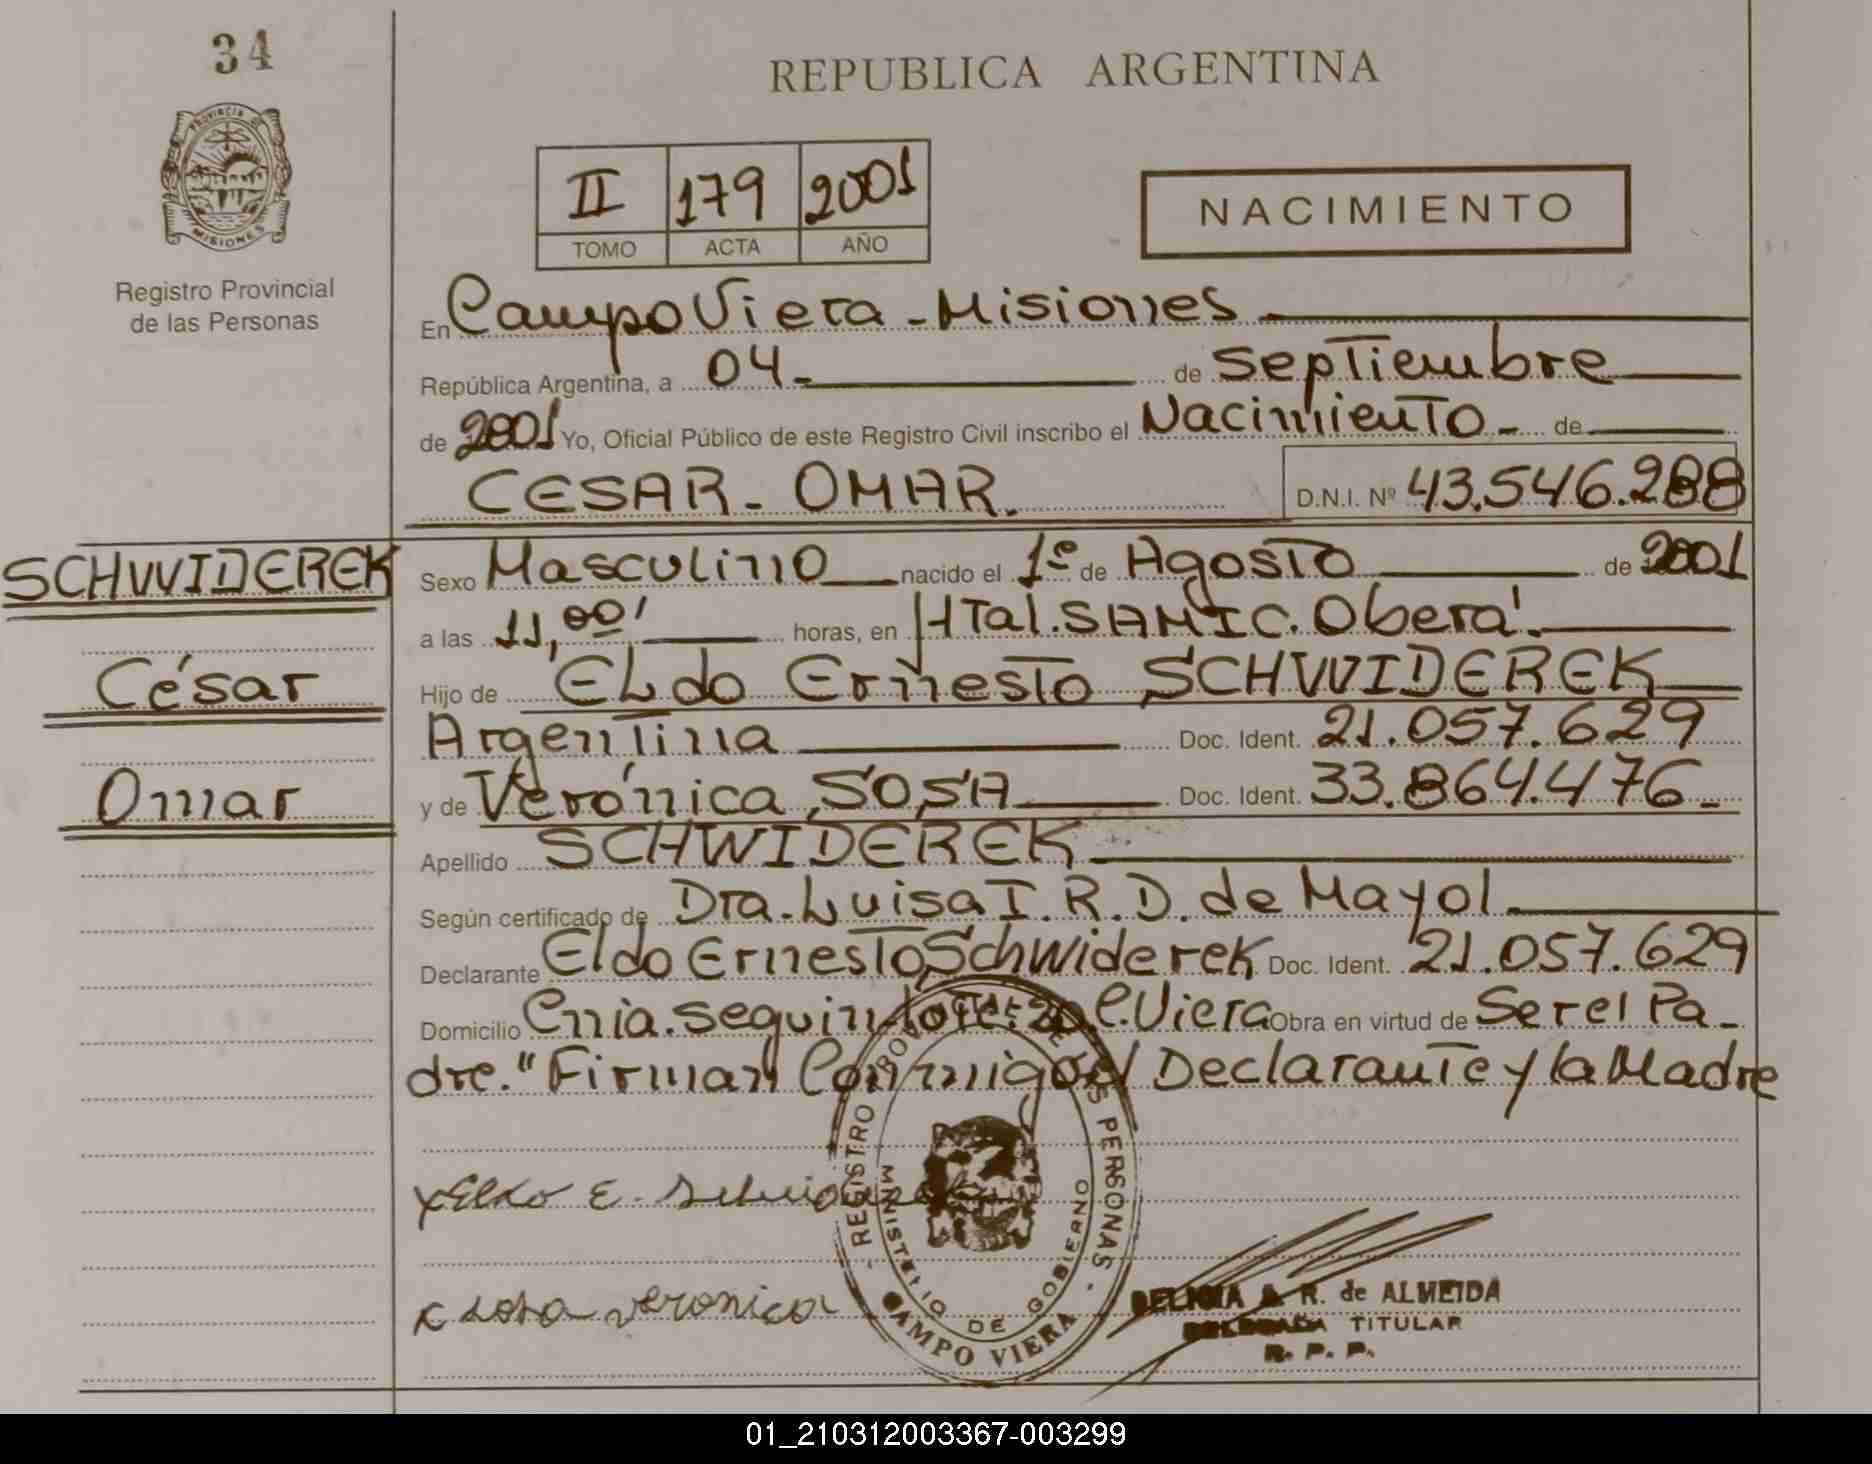 34
REPUBLICA ARGENTINA
PROVINCIA DE
MISIONES
Registro Provincial
de las Personas
II 179 2001
TOMO ACTA AÑO
NACIMIENTO
En Campo Viera - Misiones
República Argentina, a 04 - de Septiembre
de 2001 Yo, Oficial Público de este Registro Civil inscribo el Nacimiento - de
CESAR - OMAR. D.N.I. Nº 43.546.288
SCHWIDEREK
César
Omar
Sexo Masculino nacido el 1º de Agosto de 2001
a las 11,00' horas, en HTal. SAMIC. Oberá.
Hijo de ELdo Ernesto SCHWIDEREK
Argentina Doc. Ident. 21.057.629
y de Verónica SOSA Doc. Ident. 33.864.476.-
Apellido SCHWIDEREK
Según certificado de Dra. Luisa I. R. D. de Mayol
Declarante Eldo Ernesto Schwiderek Doc. Ident. 21.057.629
Domicilio Cnia. seguin lote: 20 C. Viera Obra en virtud de Ser el Pa-
dre." Firman Conmigo el Declarante y la Madre
x Eldo E.
x sosa veronica
REGISTRO PROVINCIAL DE LAS PERSONAS
MINISTERIO DE GOBIERNO
CAMPO VIERA
A. R. de ALMEIDA
DELEGADA TITULAR
R. P. P.
01_210312003367-003299